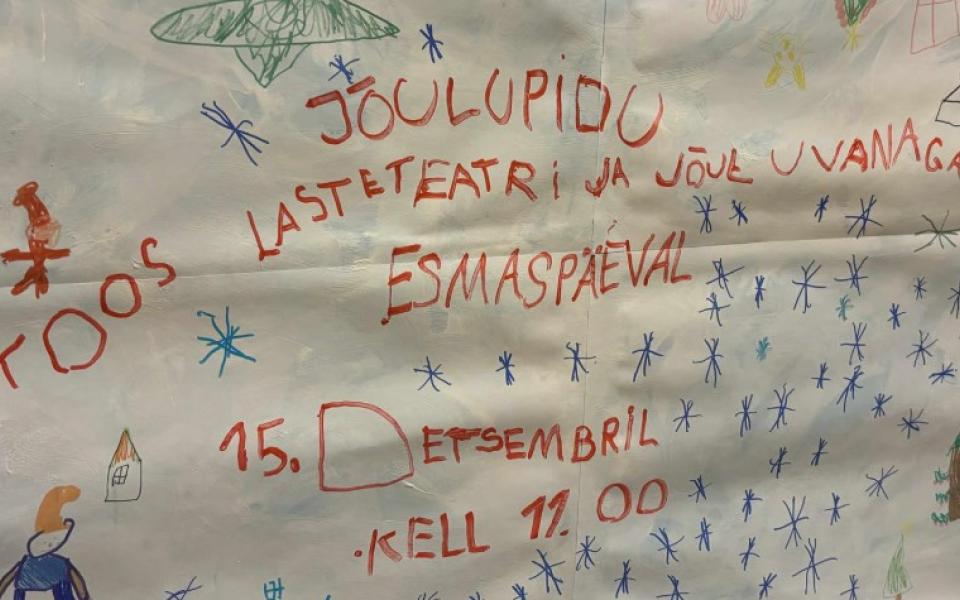 JÕULUPIDU
KOOS LASTETEATRI JA JÕULUVANAGA
ESMASPÄEVAL
15. DETSEMBRIL
KELL 11.00